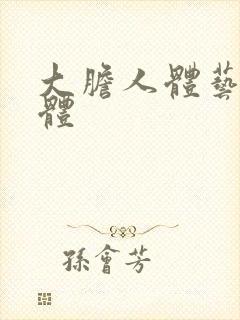 大膽人體藝
體
孫會芳